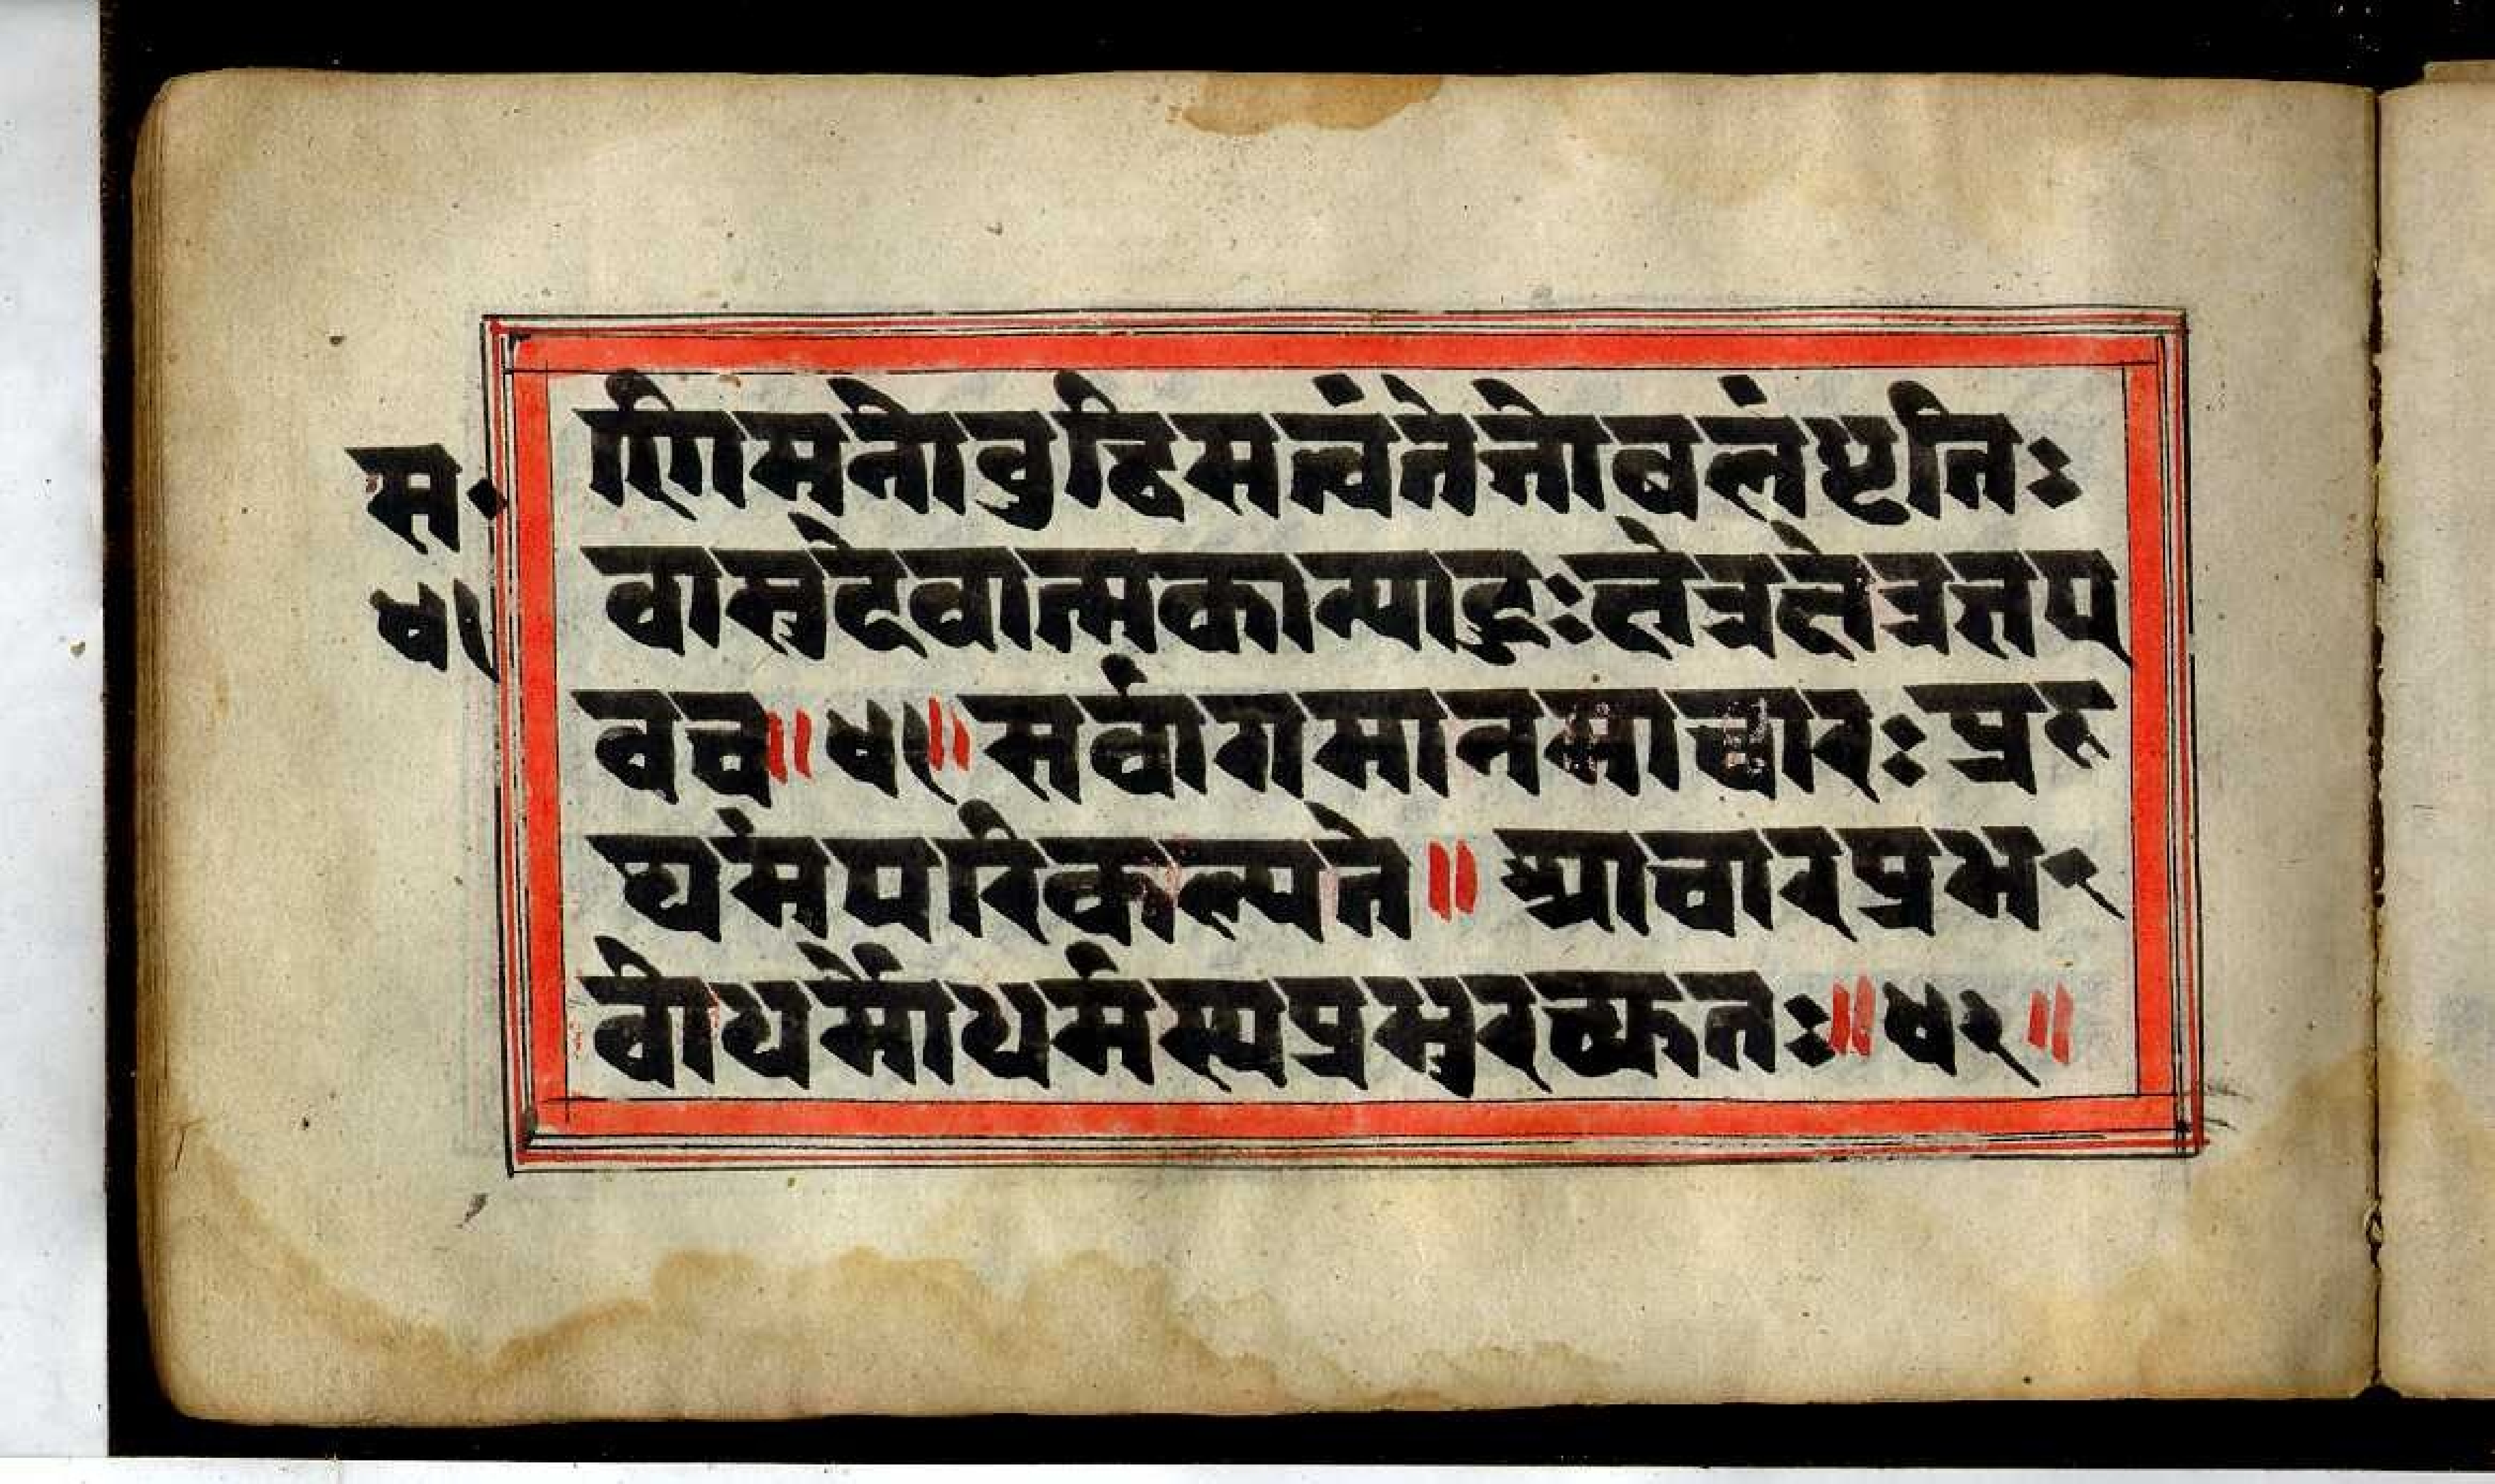 स·
५१
णिमनोवुद्धिसत्त्वंतेजोबलंधृतिः
वासुदेवात्मकान्याहुःक्षेत्रंक्षेत्रज्ञए
वच॥५१॥सर्वागमानामाचारःप्रथ
मंपरिकल्पते॥आचारप्रभ
वोधर्मोधर्मस्यप्रभुरच्युतः॥५२॥